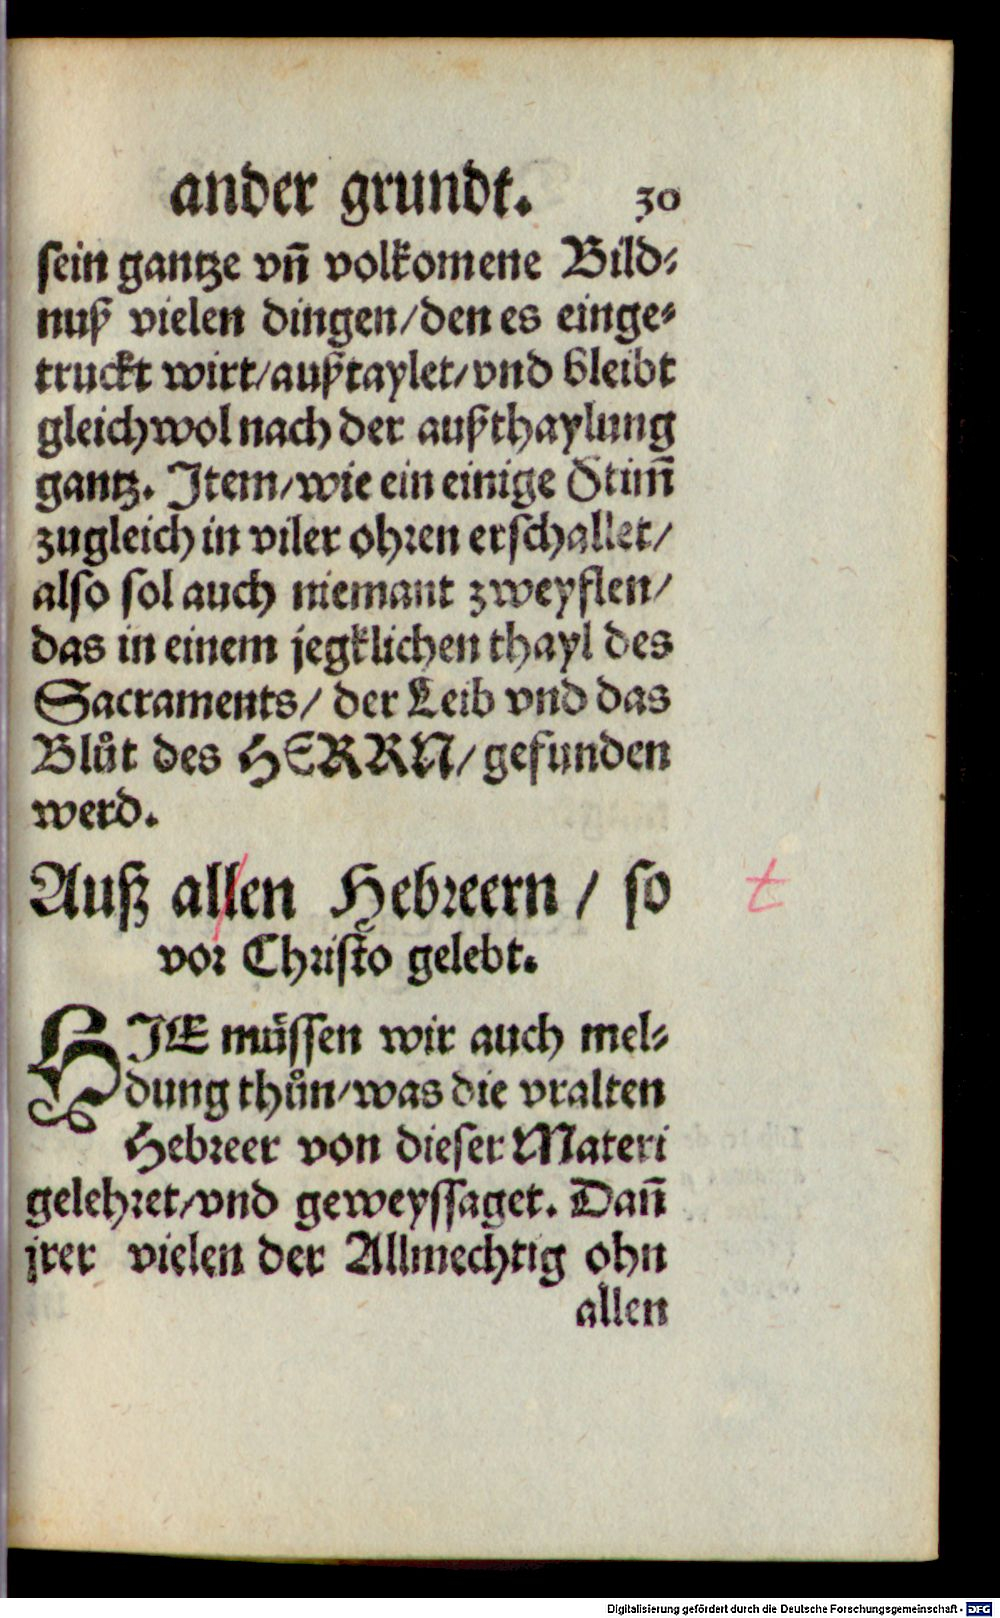 ander grundt. 30
sein gantze vñ volkomene Bild⸗
nuß vielen dingen/den es einge⸗
truckt wirt/außtaylet/vnd bleibt
gleichwol nach der außthaylung
gantz. Item/wie ein einige Stim̃
zugleich in viler ohren erschallet/
also sol auch niemant zweyflen/
das in einem jegklichen thayl des
Sacraments/ der Leib vnd das
Blůt des HERRN/gefunden
werd.
Auß allen Hebreern / so
vor Christo gelebt.
HIE müssen wir auch mel⸗
dung thůn/was die vralten
Hebreer von dieser Materi
gelehret/vnd geweyssaget. Dañ
jrer vielen der Allmechtig ohn
allen
Digitalisierung gefördert durch die Deutsche Forschungsgemeinschaft - DFG